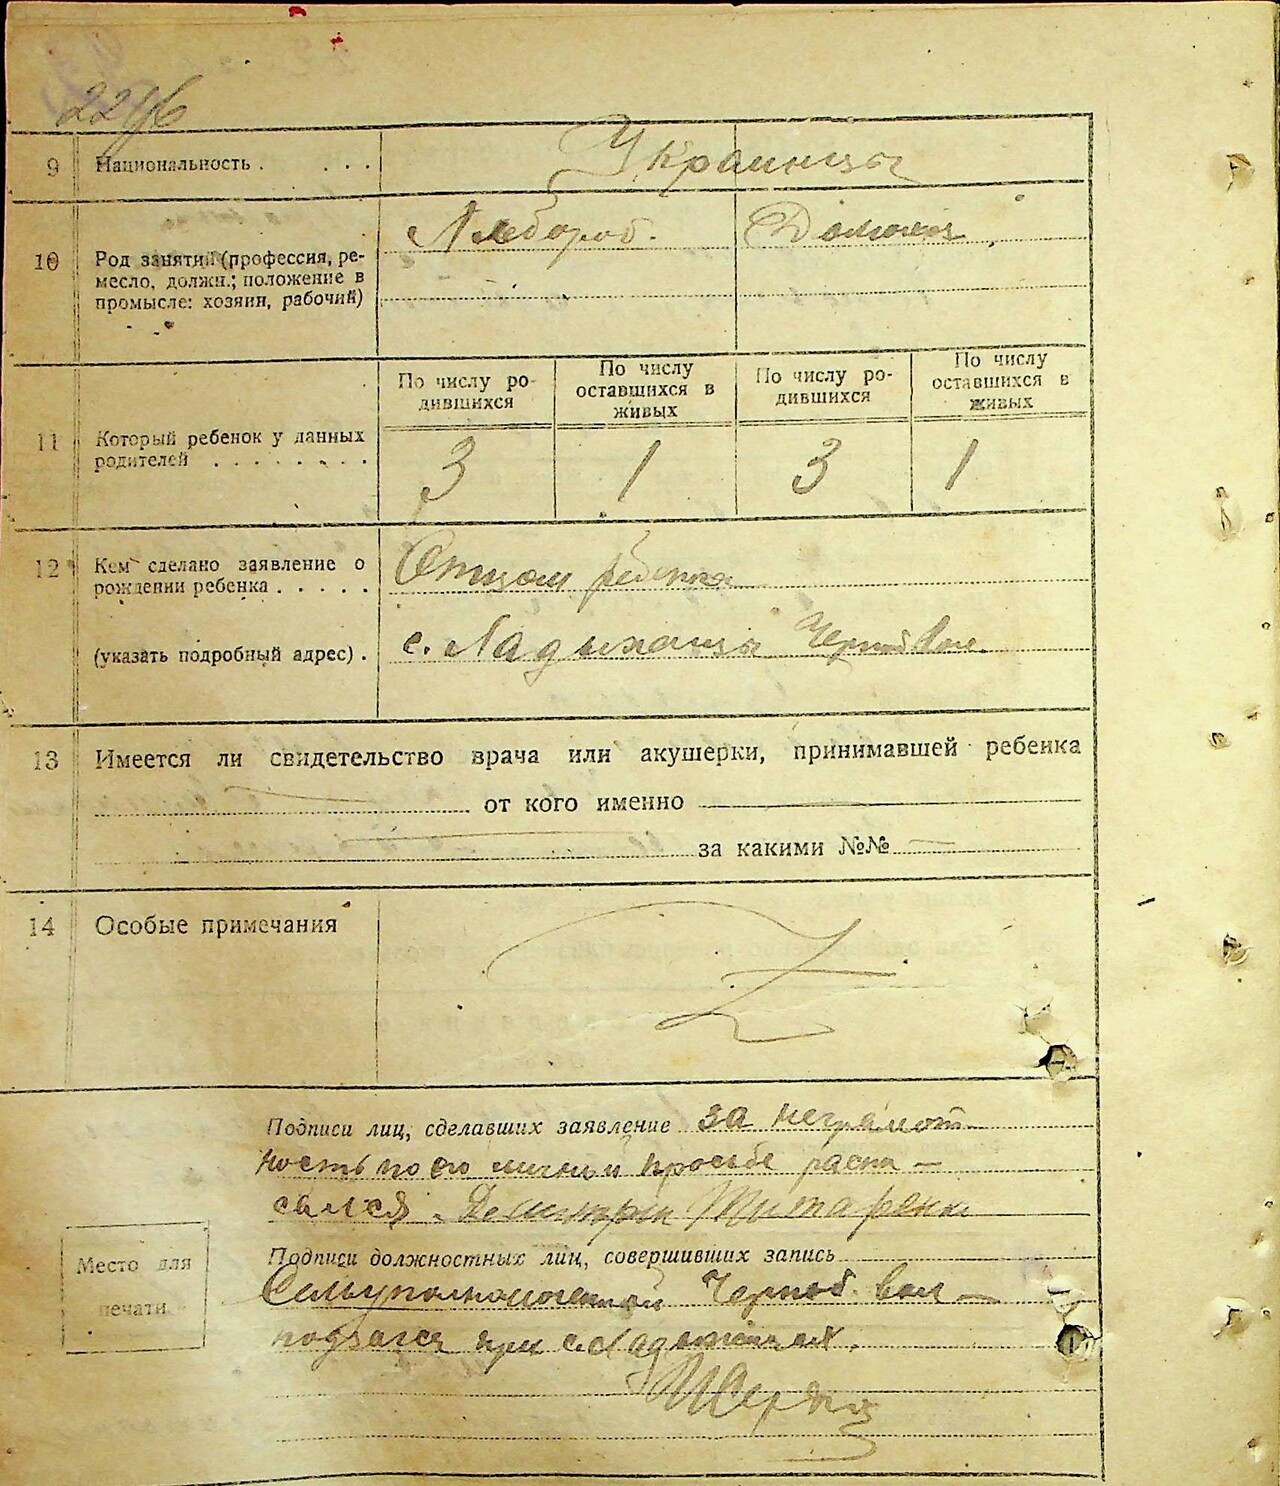 9 Национальность . . . . Украинцы
10 Род занятий (профессия, ре-
месло, должн.; положение в
промысле: хозяин, рабочий)
Хлебороб. Домохоз
11 Который ребенок у данных
родителей . . . . . . . .
По числу ро-
дившихся
По числу
оставшихся в
живых
По числу ро-
дившихся
По числу
оставшихся в
живых
3 1 3 1
12 Кем сделано заявление о
рождении ребенка . . . . .
Отцом ребенка
(указать подробный адрес) .
с. Ладыжицы Черноб Вол.
13 Имеется ли свидетельство врача или акушерки, принимавшей ребенка
от кого именно
за какими №№
14 Особые примечания
Подписи лиц, сделавших заявление за неграмот-
ность по его личной просьбе распи-
сался Титаренко
Подписи должностных лиц, совершивших запись
Сельуполномоченный Черноб. вол-
подзагса при с. Ладыжичах.
Место для
печати